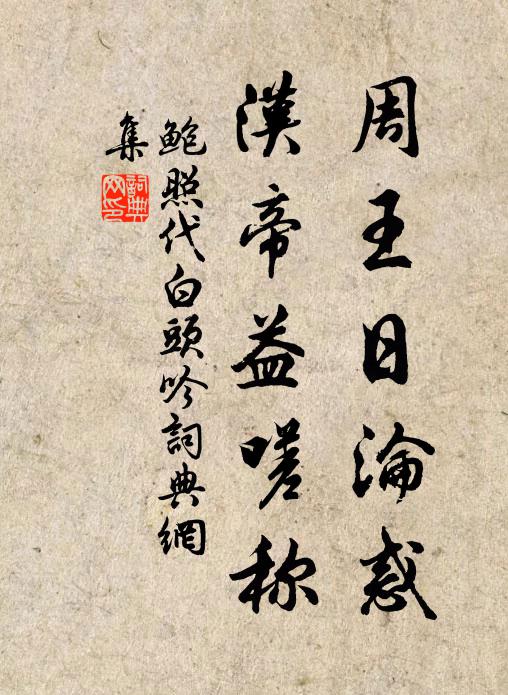 周王日淪惑
漢帝益嗟称
鲍照代白頭吟詞典網
集
詞典网印